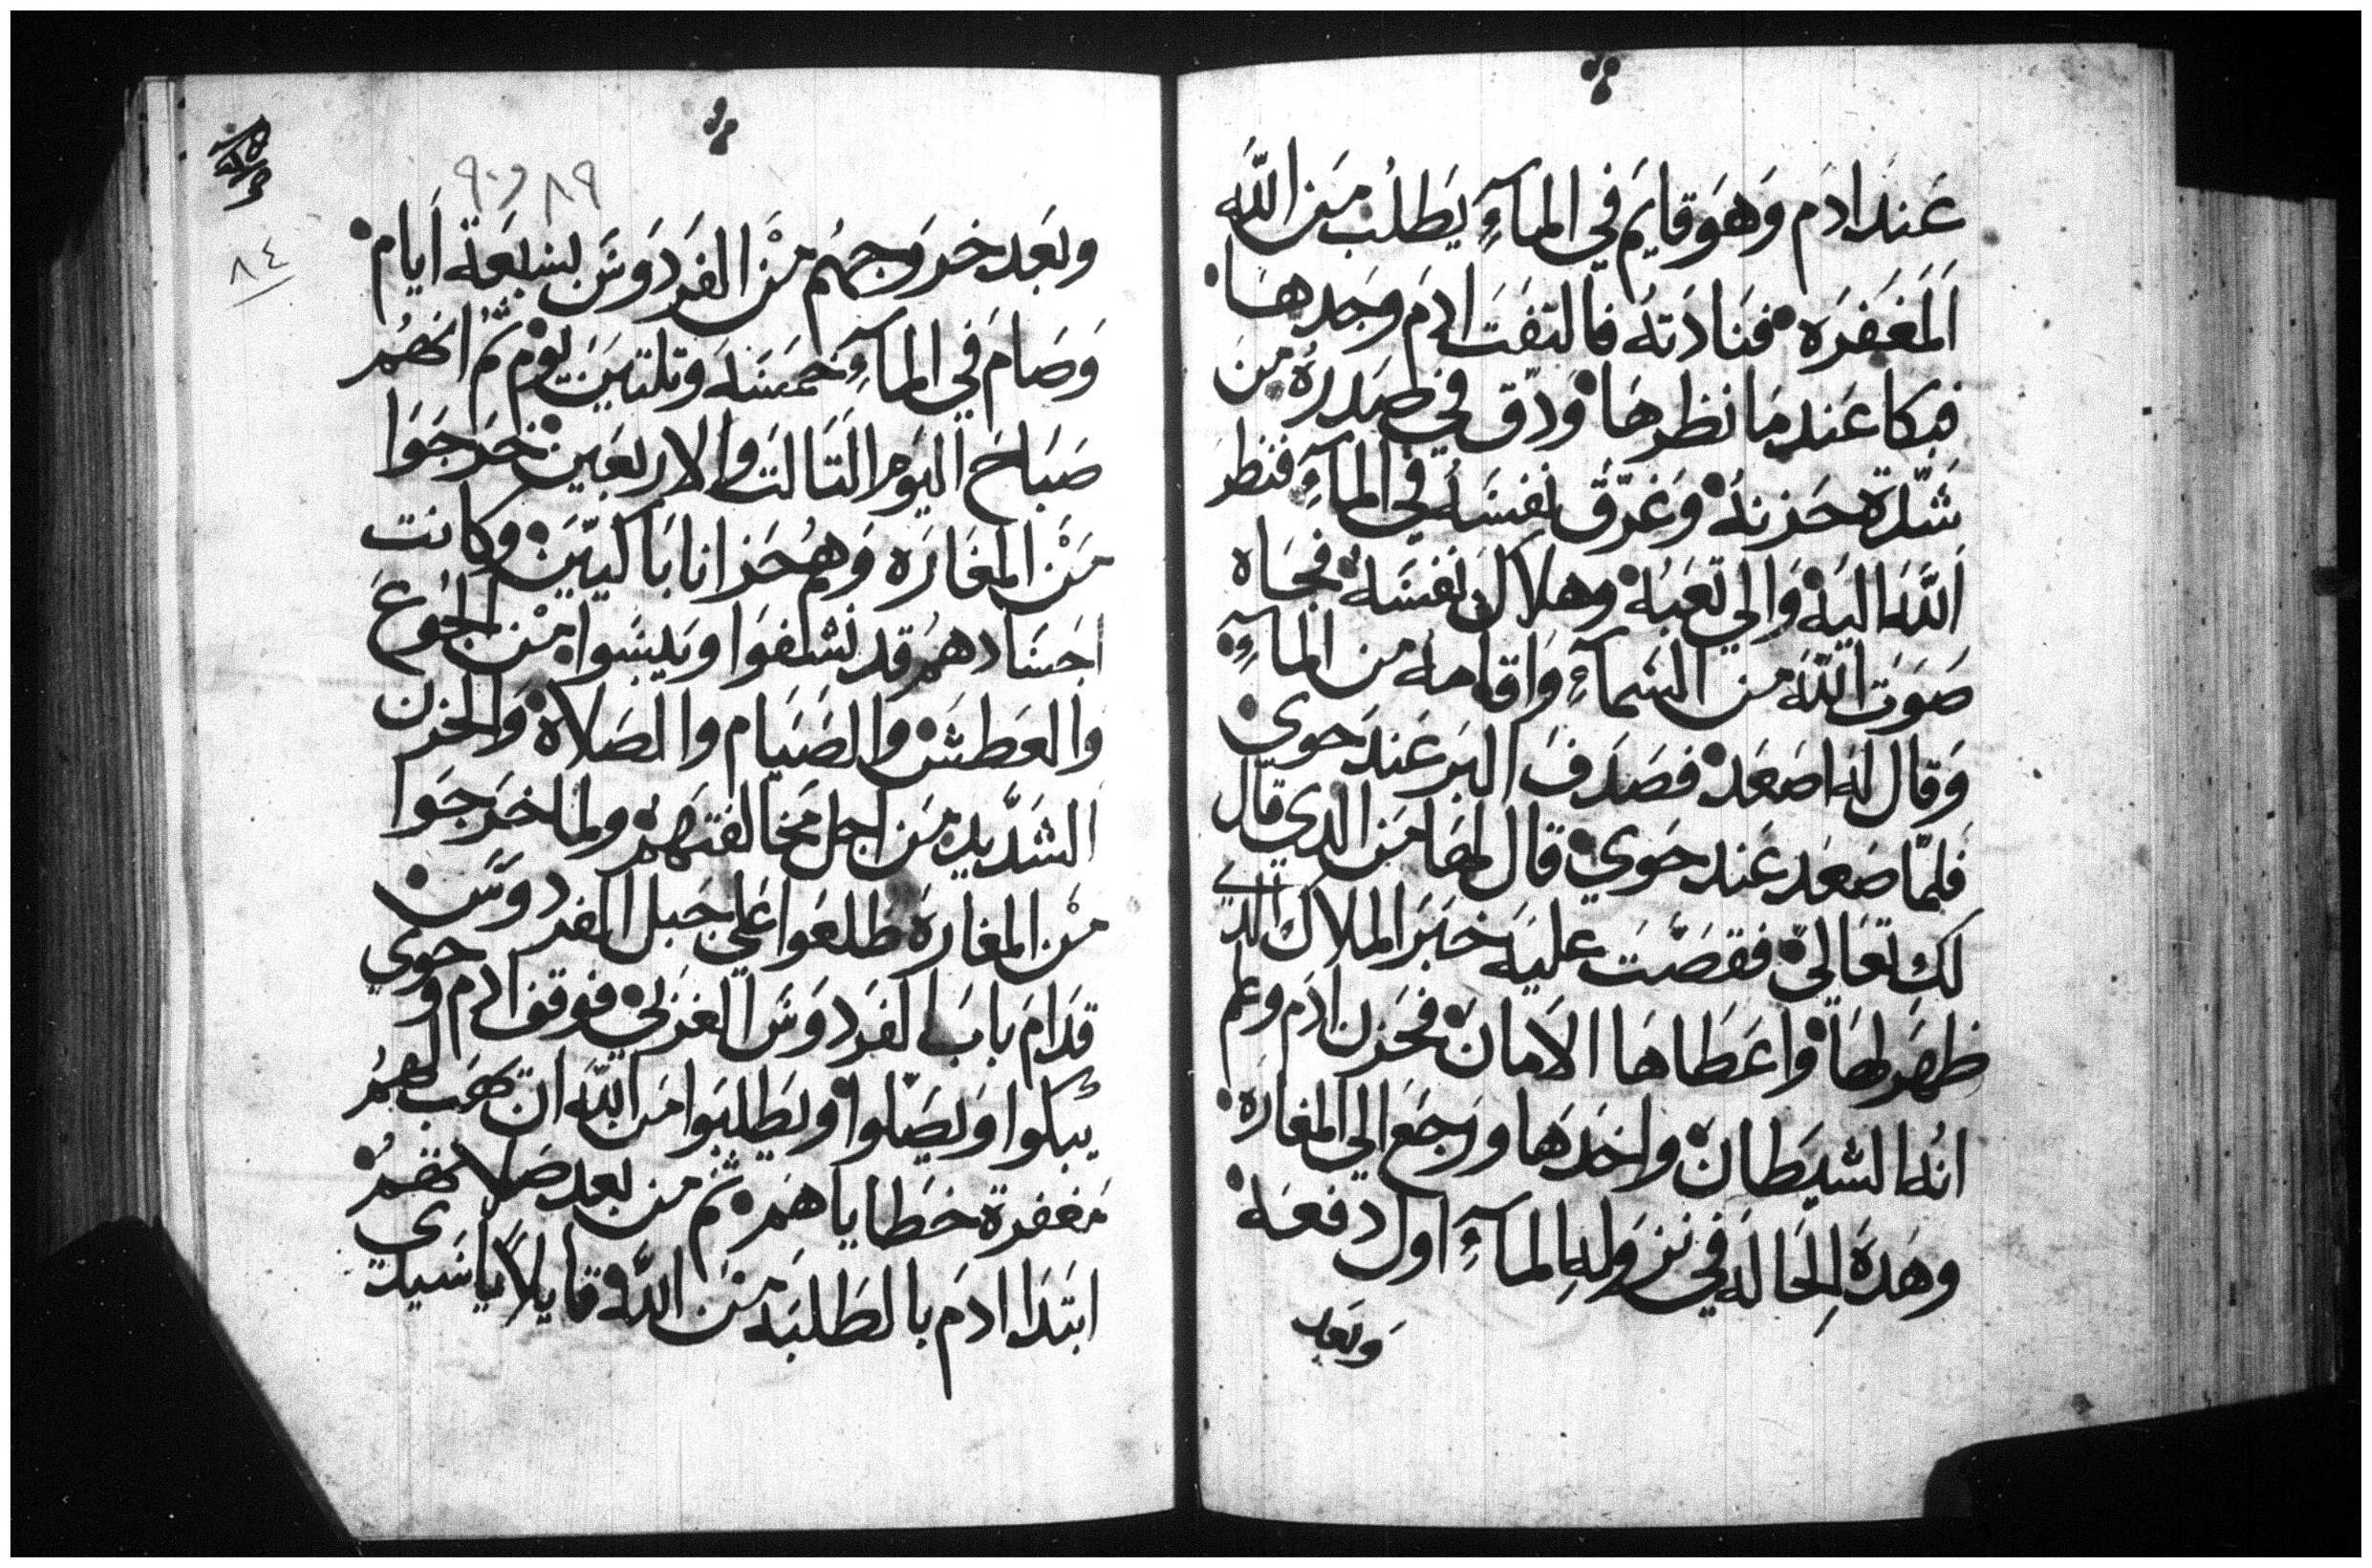 عند ادم وهو قايم في المآء يطلب من الله
المغفره فنادته فالتفت ادم وجدها
فبكا عند ما نظرها ودق في صدره من
شدة حزنه وغرق نفسه في المآء فنظر
الله اليه والي تعبه وهلاك نفسه فجاه
صوت الله من السمآء واقامه من المآء
وقال له اصعد فصدف البر عند حوي
فلما صعد عند حوي قال لها من الدي قال
لك تعالي فقصت عليه خبر الملاك الدي
ظهر لها واعطاها الامان فحزن ادم وعلم
انه الشيطان واخدها ورجع الي المغاره
وهده الحاله في نزوله المآء اول دفعه
وبعد
٨٩ و ٩٠
٨٤
وبعد خروجهم من الفردوس بسبعة ايام
وصام في المآء خمسه وتلتين يوم ثم انهم
صباح اليوم التالت والاربعين خرجوا
من المغاره وهم حزانا باكيين وكانت
اجسادهم قد نشفوا ويبسوا من الجوع
والعطش والصيام والصلاة والحزن
الشديد من اجل مخالفتهم ولما خرجوا
من المغارة طلعوا علي جبل الفردوس
قدام باب الفردوس الغربي فوقف ادم وحوي
يبكوا ويصلوا ويطلبوا من الله ان يهب لهم
مغفرة خطاياهم ثم من بعد صلاتهم
ابتدا ادم بالطلبه من الله قايلاً يا سيدي